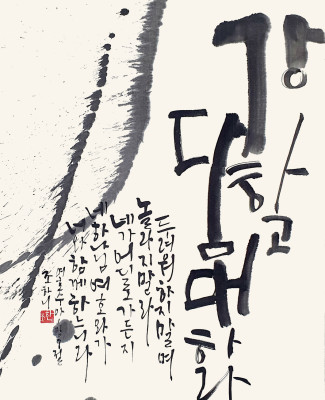 강하고
담대하라
두려워하지말며
놀라지말라
네가어디로가든지
네하나님 여호와가
너와 함께 하느니라
여호수아